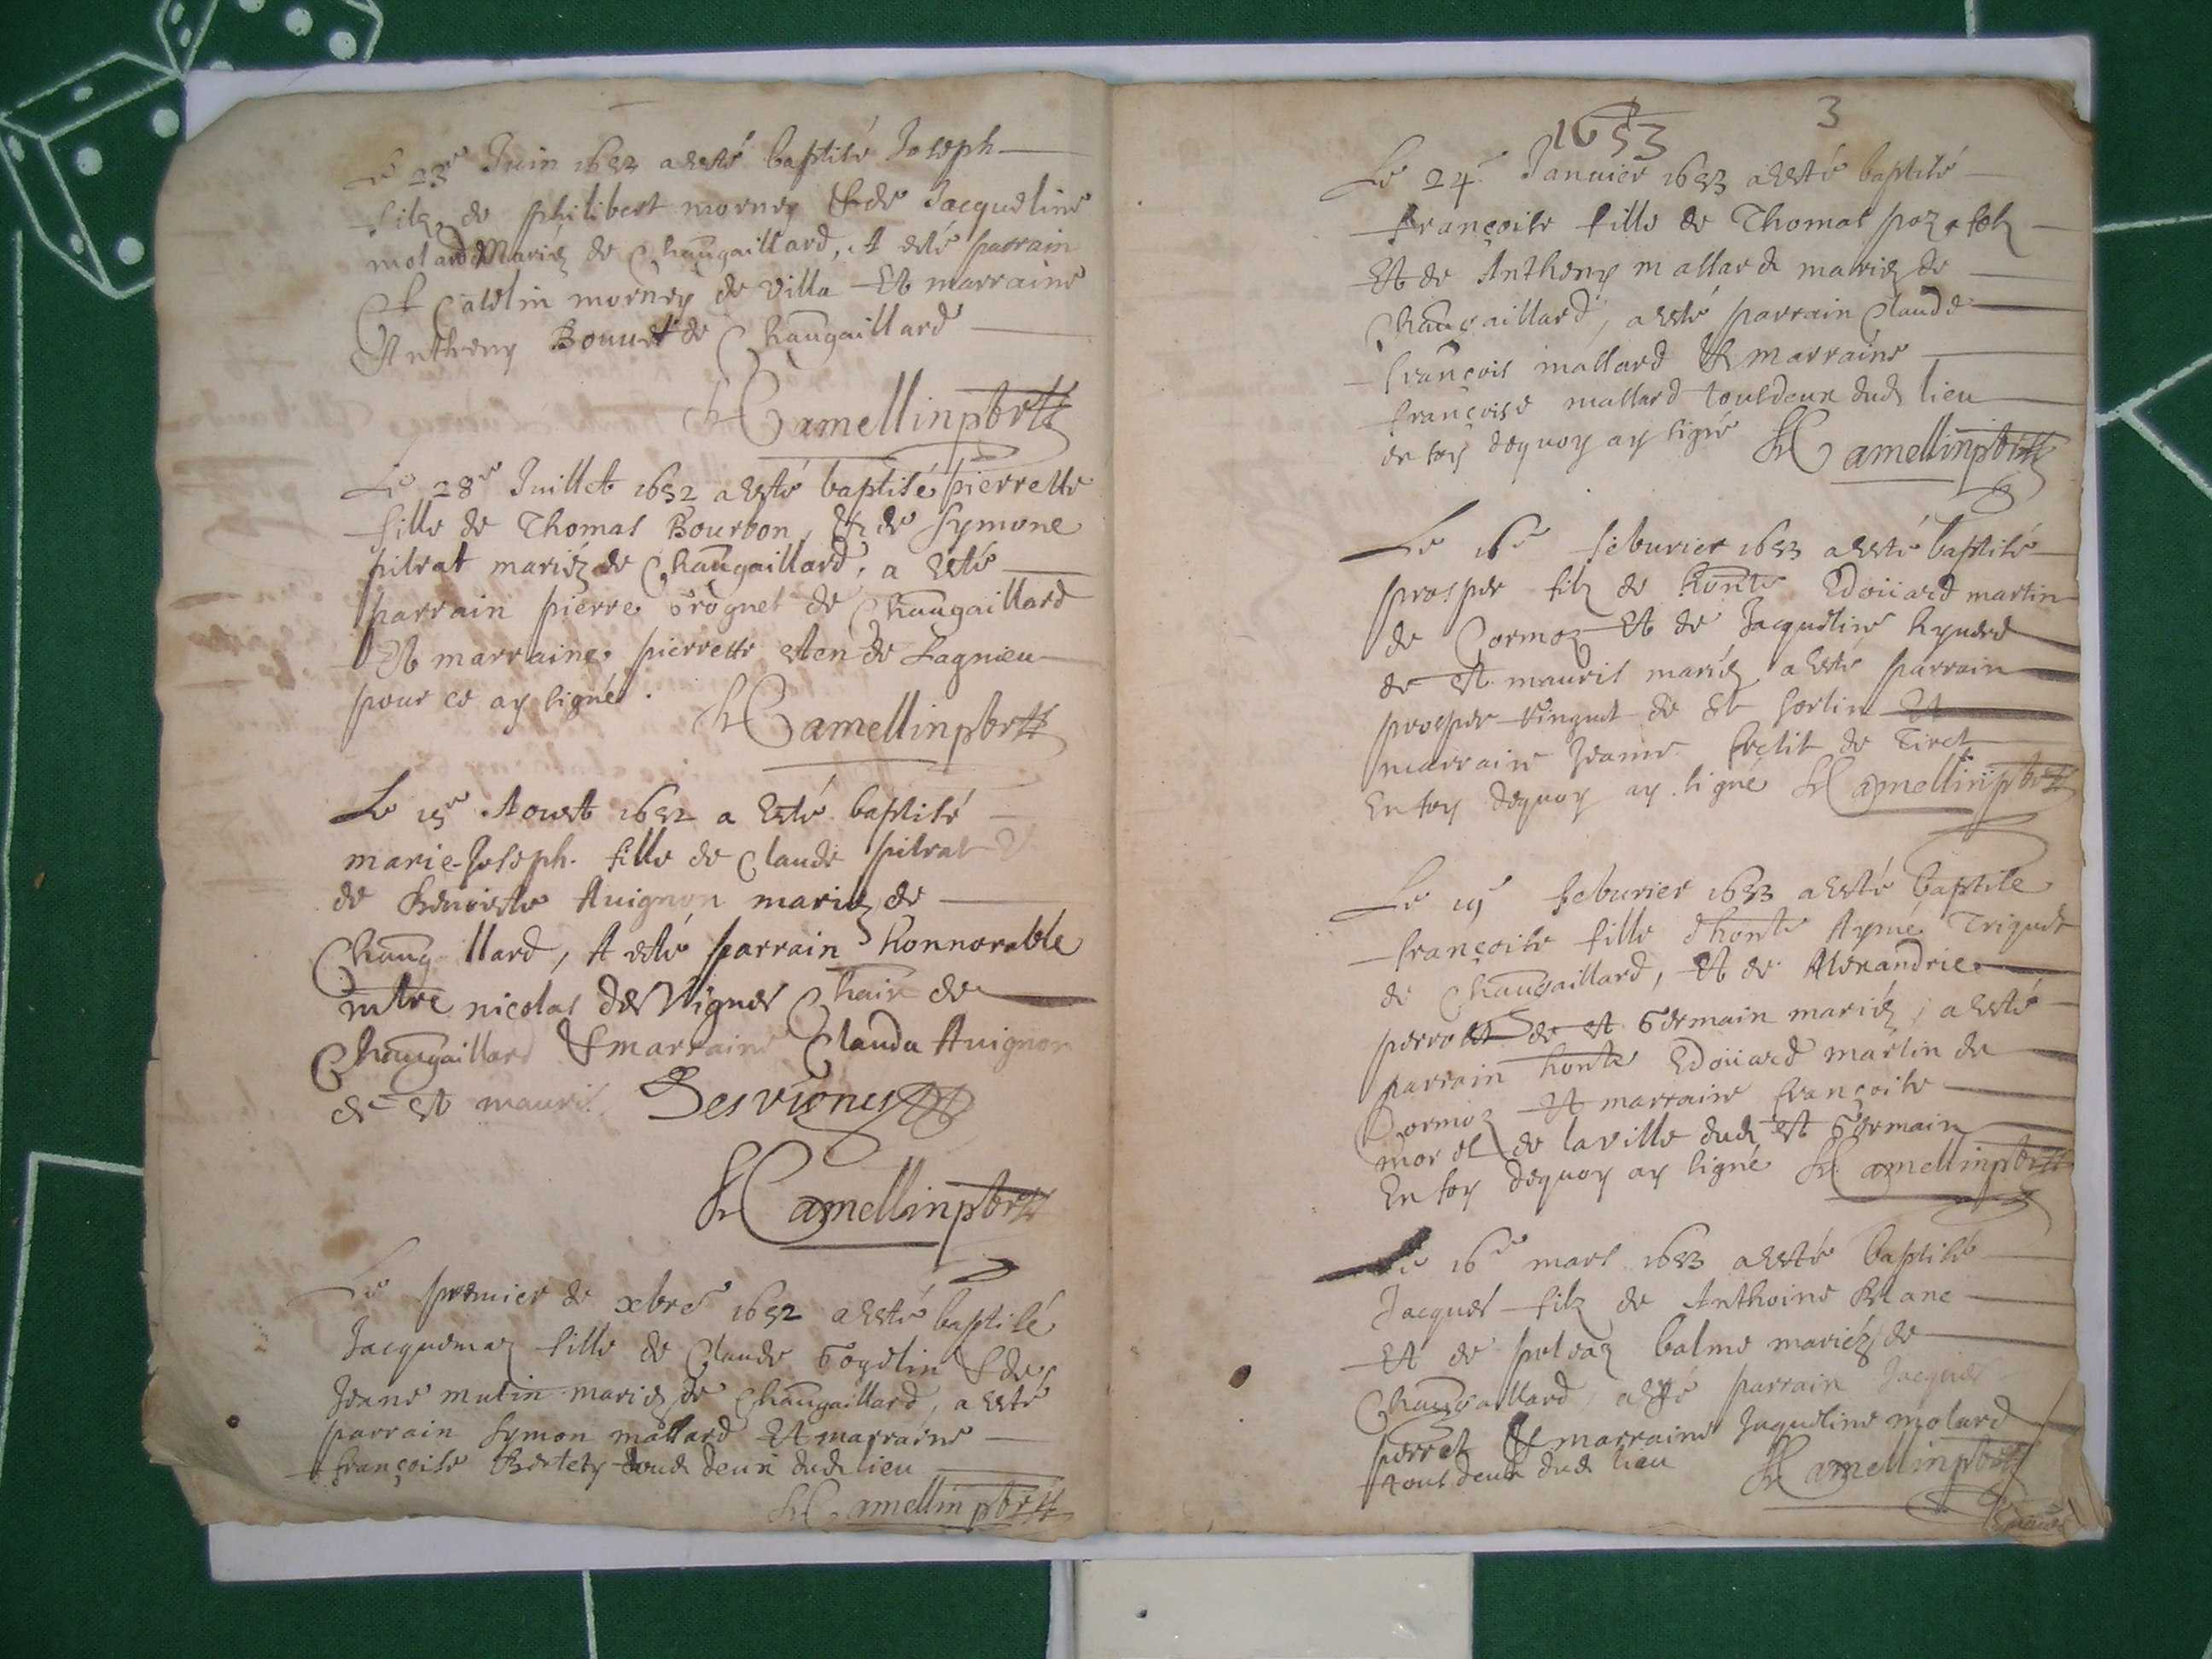 Le 23e Juin 1652 a esté baptisé Joseph
filz de philibert morney & de Jacqueline
molard Mariéz de Chaugaillard, A esté parrain
morney de villa Et marraine
Antheny Bouuet de Chaugaillard
Camellin pbtre
Le 28e Juillet 1652 a esté baptisé pierrette
fille de Thomas Bourbon, & de Symone
pitrat mariéz de Chaugaillard, a esté
parrain pierre de Chaugaillard
Et marraine pierrette de Lagnieu
pour ce ay signé. Camellin pbtre
Le 15e Aoust 1652 a Esté baptisé
marie-Joseph fille de Claude pitrat &
de Benoiste Auignon mariéz de
Chaug llard, A esté parrain honnorable
mtre nicolas des Vignes de
Chaugaillard & marraine Clauda Auignon
de st mauris Desvignes
Camellin pbtre
Le premier de xbre 1652 a esté baptisé
Jacquemaz fille de Claude Gogelin & de
Jeane mutin mariéz de Chaugaillard, a esté
parrain Symon mallard Et marraine
françoise deux dud lieu
Camellin pbtre
1653 3
Le 24e Januier 1653 a esté baptisé
françoise fille de Thomas
Et de Antheny mallard mariéz de
Chaugaillard, a esté parrain Claude
françois mallard & marraine
françoise mallard tous deux dud lieu
en foy dequoy ay signé Camellin pbtre
Le 16e feburier 1653 a esté baptisé
prosper filz de honte Edoüard martin
de Cormoz Et de Jacqueline
de st mauris mariéz a esté parrain
prosper de st sorlin Et
marraine Jeanne de Tiret
En foy dequoy ay signé Camellin pbtre
Le 19 feburier 1653 a esté baptisé
françoise fille d'honte Aymé Triquet
de Chaugaillard, Et de Alexandrie
perrolet de st Germain mariéz, a esté
parrain honte Edoüard martin de
Cormoz Et marraine françoise
morel de la ville dud st Germain
En foy dequoy ay signé Camellin pbtre
Le 16e mars 1653 a esté baptisé
Jacques filz de Anthoine Blanc
Et de balme mariéz de
Chaugaillard, a esté parrain Jacques
perret & marraine Jaqueline molard
tous deux dud lieu Camellin pbtre